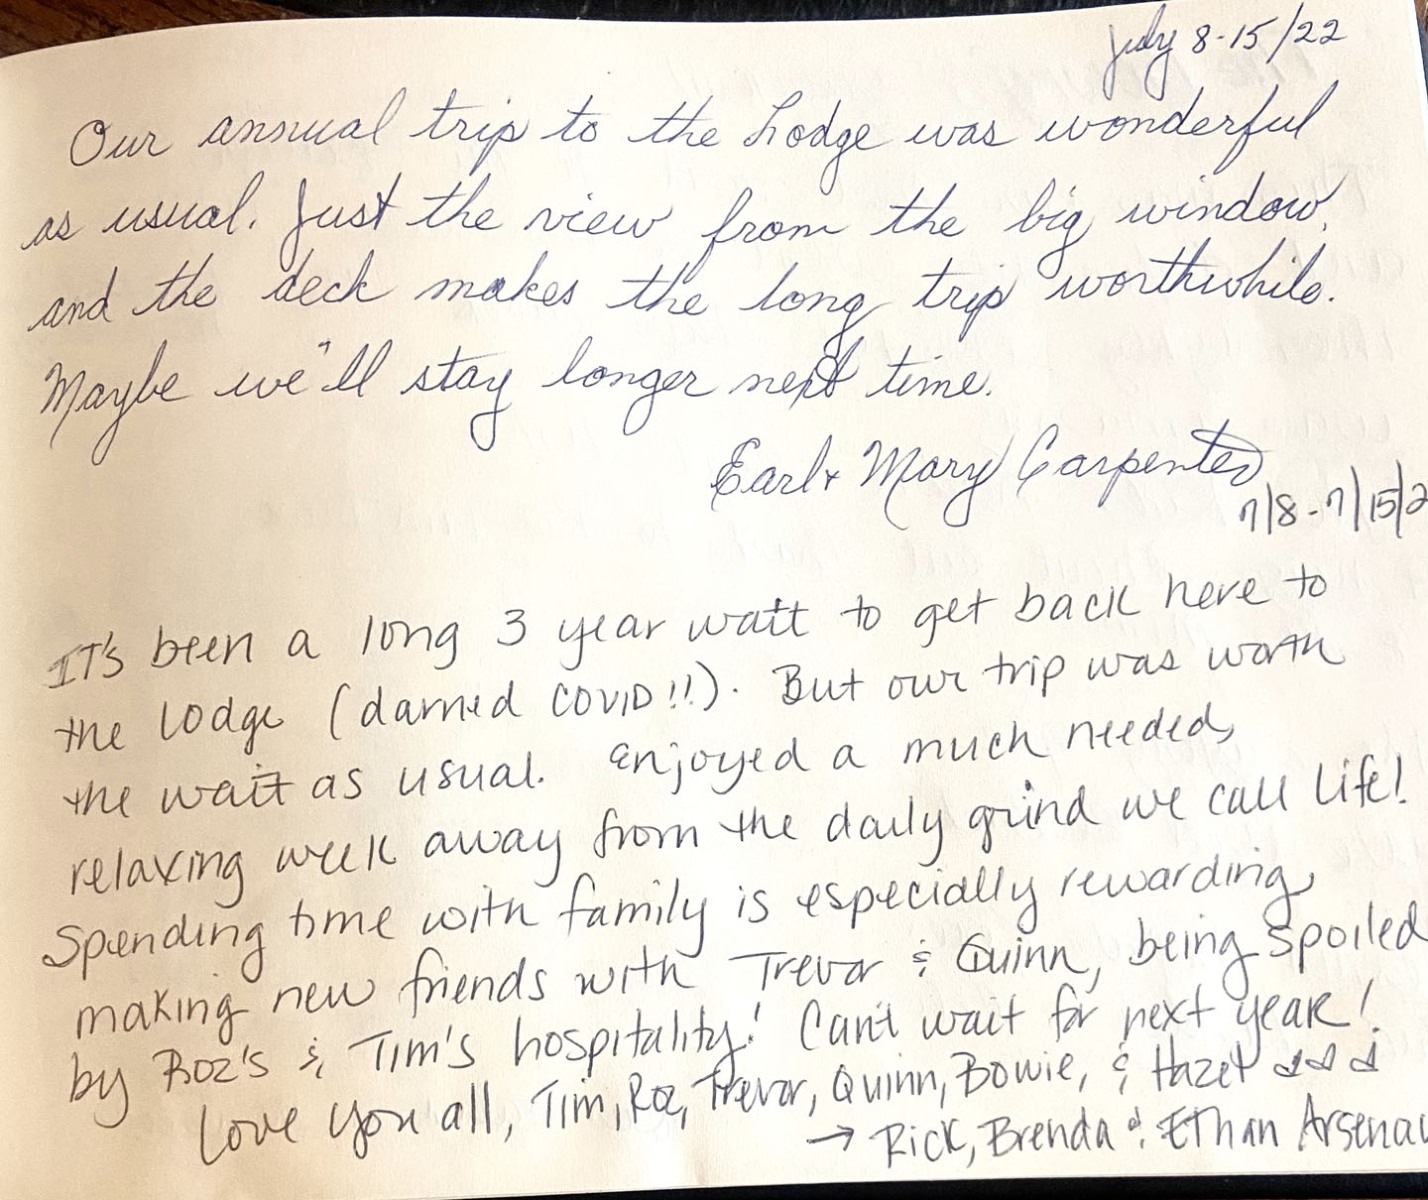 July 8-15/22
Our annual trip to the Lodge was wonderful
as usual. Just the view from the big window,
and the deck makes the long trip worthwhile.
Maybe we'll stay longer next time.
Earl & Mary Carpenter
7/8-7/15/2
IT'S been a long 3 year wait to get back here to
the lodge (darned COVID!!). But our trip was worth
the wait as usual. Enjoyed a much needed,
relaxing week away from the daily grind we call life!
Spending time with family is especially rewarding,
making new friends with Trevor & Quinn, being spoiled
by Roz's & Tim's hospitality! Can't wait for next year!
Love you all, Tim, Roz, Trevor, Quinn, Bowie, & Hazel
→ Rick, Brenda & Ethan Arsenau